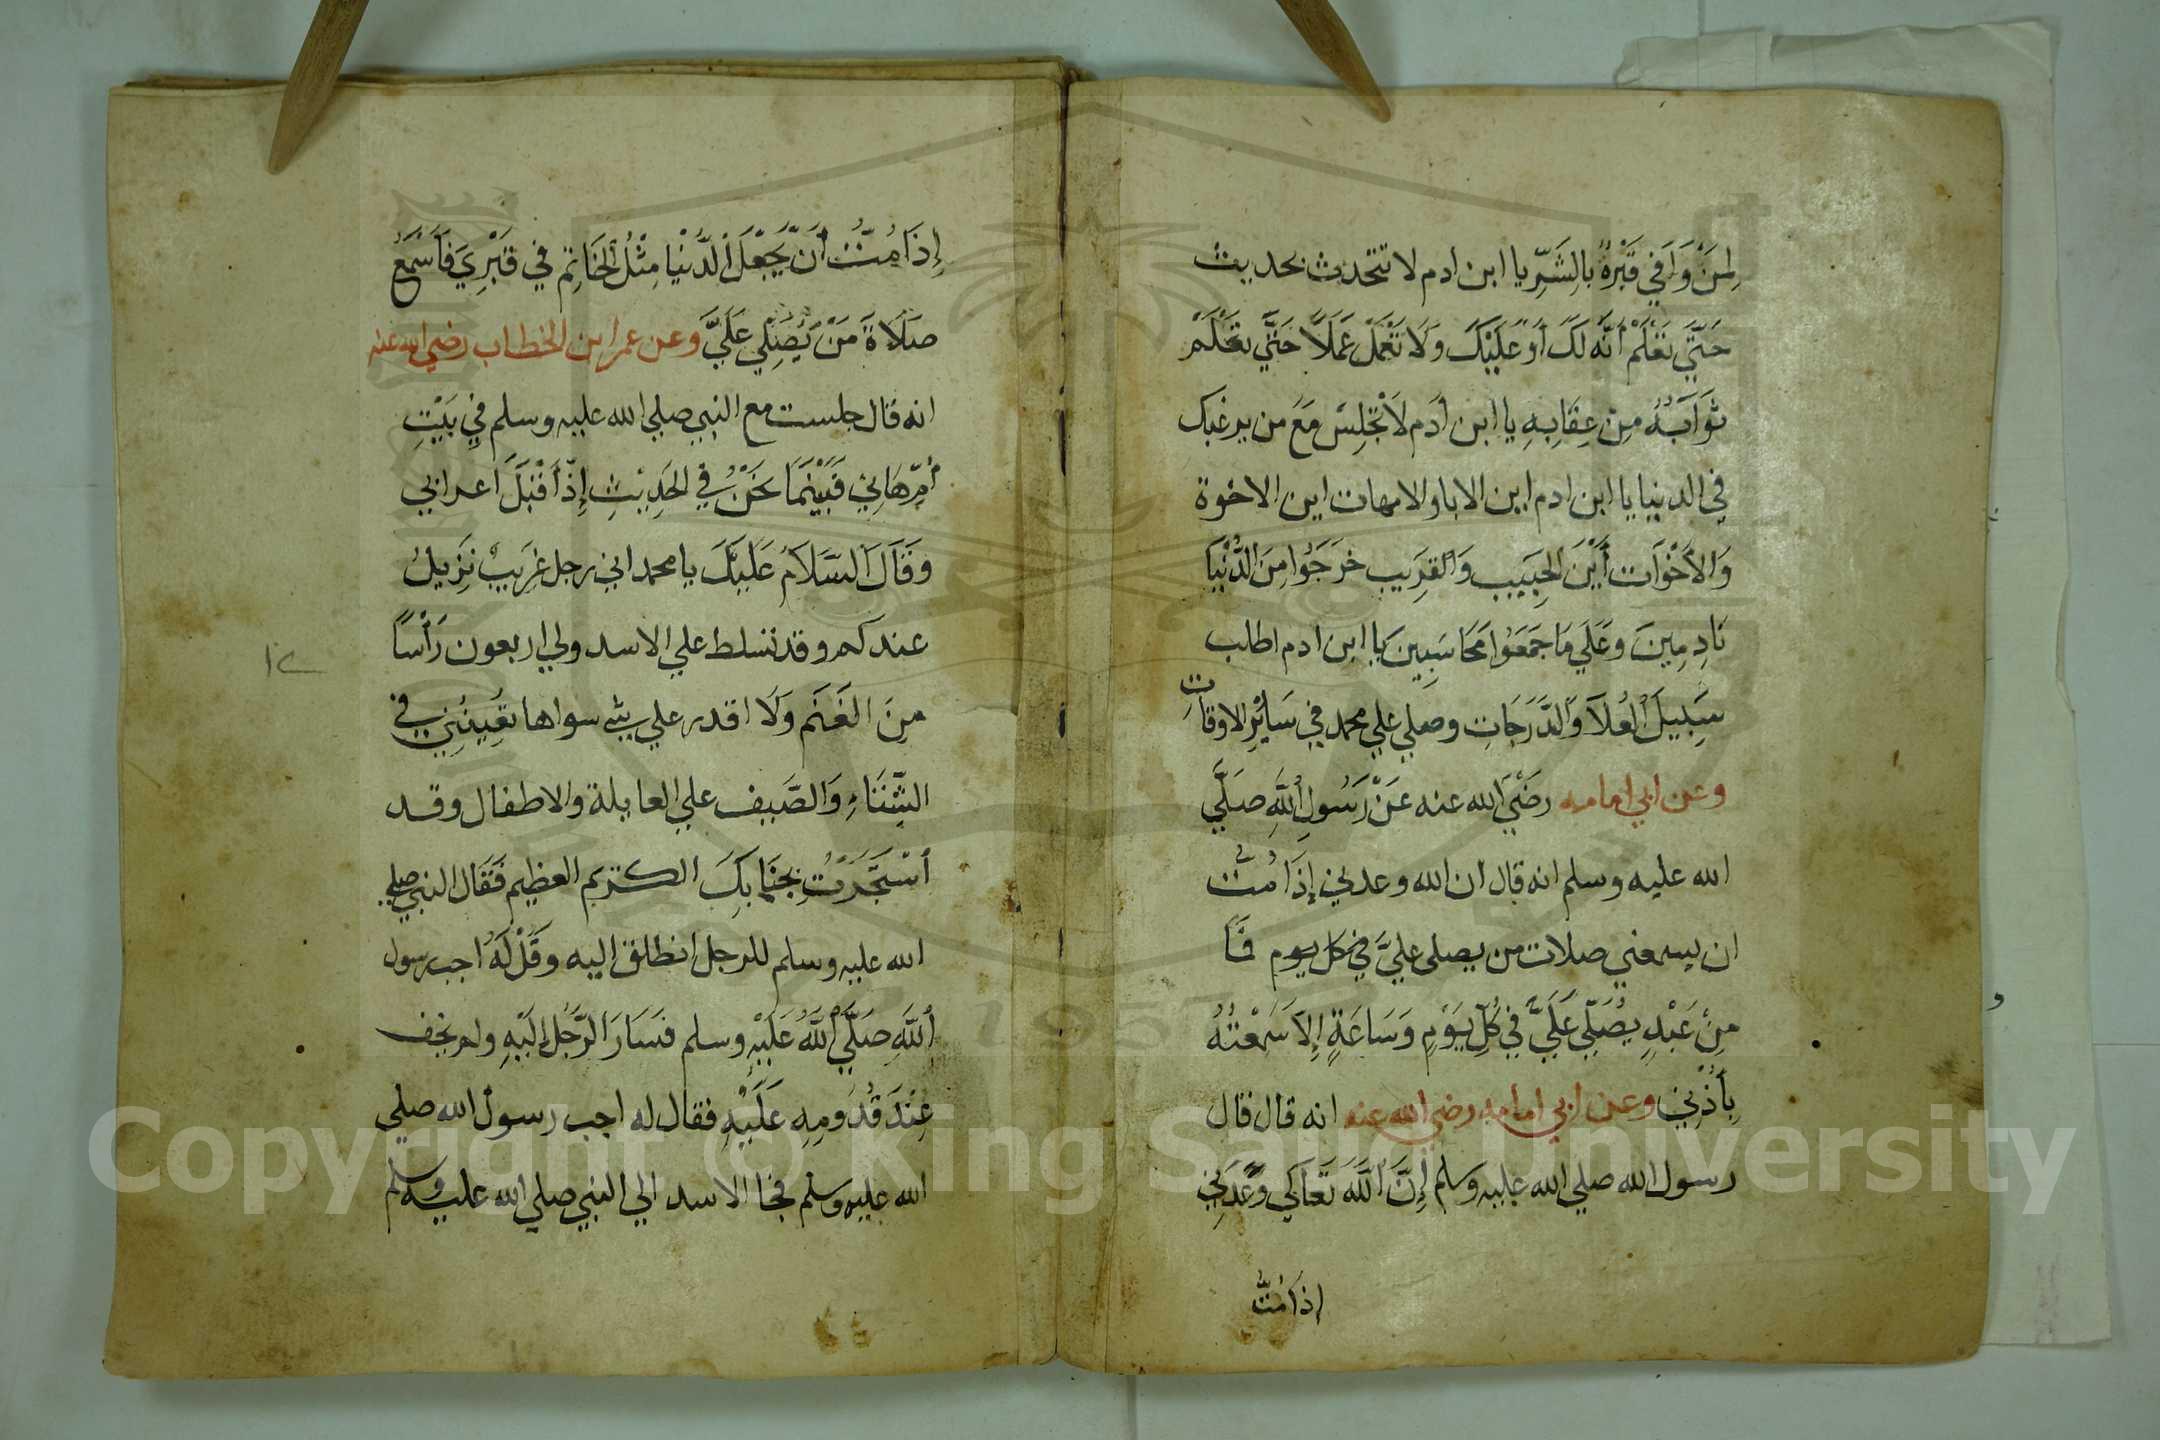 لِمَنْ وَافَي قَبْرهُ بالِشَرِّ يا ابن ادم لا تتحدث بحديث
حَتَّي تَعْلَمْ أنَّه لَكَ أوْ عَلَيْكَ وَلَا تَعْمَلْ عَمَلاً حَتَّي تعْلَمْ
ثَوَابَهُ مِنْ عِقَابِهِ يا ابن أدَم لَا تَجْلِسْ مَعْ من يرغبك
في الدنيا يا ابن ادم اين الابا والامهات اين الاخوة
وَالأخْوَات أَيْنَ الحَبِيب وَالقرِيب خرَجَوُا مِنَ الدُّنْيَا
نَادِمِينَ وَعَلَي مَا جَمَعُوا مَحَاسَبِينَ يا ابن ادم اطلب
سَبِيلَ الْعُلَا وَالدَّرَجَاتِ وصلي علي محمد في سَايْرِ الاوقاتِ
وعن ابي امامه رضْيَ الله عنه عَنْ رَسُولِ اللَّهِ صَلَّي
الله عليه وسلم انه قال ان الله وعدني إذَا مُتُّ
ان يسمعني صلات من يصلي عليَّ في كل يوم فَمَا
مِنْ عَبْدٍ يُصَلِّي عَلَيَّ في كُلِّ يَوْمٍ وَسَاعَةٍ إِلَّا سَمْعْتُهُ
بِأُذُنِي وعن ابي امامه رضي الله عنه انه قال قال
رسول الله صلي الله عليه وسلم إِنَّ اللَّهَ تَعَالَي وَعَدَنِي
إذَا مُتُّ
إِذَا مُتُّ أَنْ يَجْعَلَ الدُّنْيَا مِثْلُ الْخَاتِمِ فِي قَبْرِي فَأَسْمَعُ
صَلَاةَ مَنْ يُصَلِّي عَلَيَّ وعن عمر ابن الخطاب رضي الله عنه
انه قال جلست مع النبي صلي الله عليه وسلم في بَيْتِ
أُمِّ هَانِي فَبَيْنَمَا نَحَنْ في الحَدِيْثِ إِذْ أَقْبَلَ اعرابي
وَقَالَ السَّلَامُ عَلَيْكَ يا محمد اني رجل غَرِيبٌ نَزِيلٌ
عندكم وقد تسلط علي الاسد ولي اربعون رَأْسًا
مِنَ الغَنَم وَلَا اقدر علي شي سواها تقِينِي في
الشِّتَاءِ وَالصَّيف علي العايلة والاطفال وقد
أسْتَجَرْتُ بجَنَابِكَ الكريم العظيم فَقَال النبي صلي
الله عليه وسلم للرجل انطلق اليه وَقُلْ لَهُ اجب رسول
اللَّهِ صَلَّي اللَّهُ عَلَيْهِ وسلم فسَارَ الرَّجُلُ إِلَيْهِ ولم يخف
عِنْدَ قُدُومِهِ عَلَيْهِ فقال له اجب رسول الله صلي
الله عليه وسلم فجا الاسد الي النبي صلي الله عليه وسلم
١٢
Copyright © King Saud University